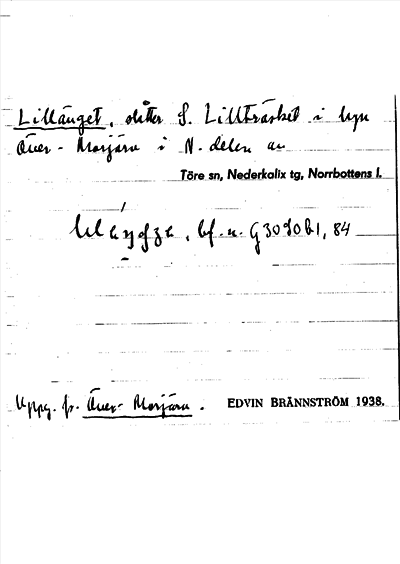 Lillänget, slåtter S. Lillträsket i byn
Över-Morjärv i N. delen av
Töre sn, Nederkalix tg, Norrbottens l.
bf. u. G3090b1, 84
Uppg. fr. Över-Morjärv.
EDVIN BRÄNNSTRÖM 1938.